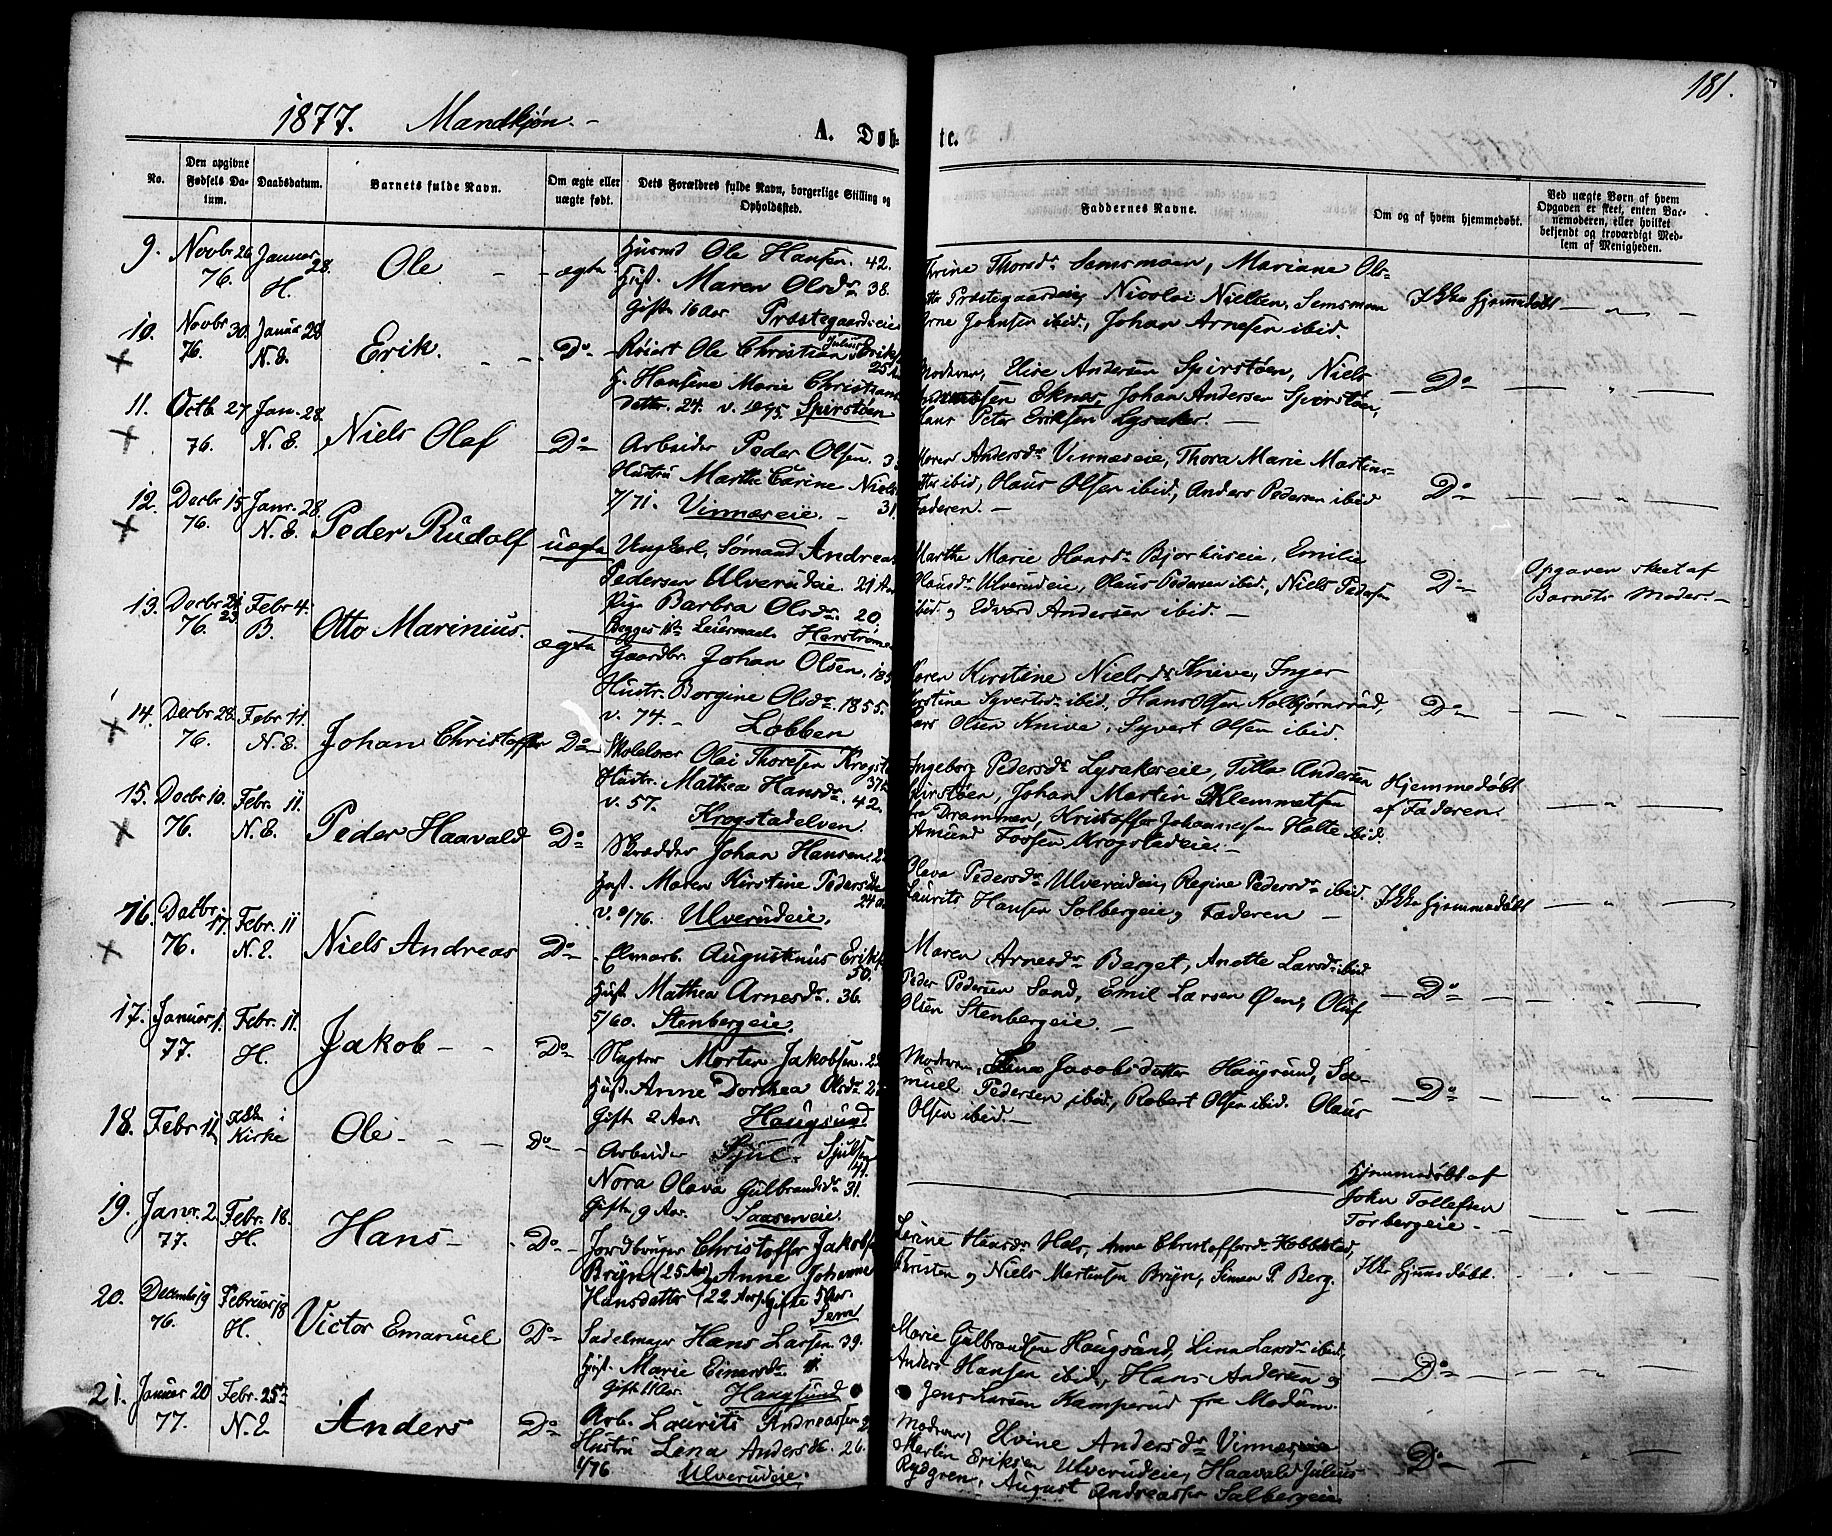 181.
1877. Mandkjøn. -
A. Døb- te.
No.
Den opgivne Fødsels Datum.
Daabsdatum.
Barnets fulde Navn.
Om ægte eller uægte født.
Dets Forældres fulde Navn, borgerlige Stilling og Opholdssted.
Faddernes Navne.
Om og af hvem hjemmedøbt.
Ved uægte Børn af hvem Opgaven er skeet, enten Barnemoderen, eller hvilket bekjendt og troværdigt Medlem af Menigheden.
9. Novbr 26 76. Januar 28. H. Ole ægte
Husmd Ole Hansen. 42.
Hust. Maren Olsdr 38.
Gifte 16 Aar Præstegaardseie
Thrine Thorsdr Semsmoen, Mariane Ols-
Præstegaardseie, Nicolai Nielsen, Semsmoen
Arne Johnsen ibid., Johan Arnesen ibid.
Ikke hjemmedøbt
10. Novbr 30. 76. Januar 28 N.E. Erik. Do
Ole Christian Julius Eriks
25 Aar
H. Hansine Marie Christians
datter. 24. Spirstøen
Moderen, Elise Andersen Spirstøen, Niels
Eknes, Johan Andersen Spirstøen,
Hans Peter Eriksen Lysaker.
Do
11. Octb. 27 76. Jan. 28. N.E. Niels Olaf Do
Arbeider Peder Olsen.
Hustru Marthe Carine Niels
7/71. Vinnæseie. 31.
Maren Andersdr Vinnæseie, Thora Marie Martins-
ibid, Olaus Olsen ibid., Anders Pedersen ibid
Faderen.
Do
12. Decbr 15 76. Janr. 28. N.E. Peder Rudolf uægte
Ungkarl, Sømand Andreas
Pedersen Ulverudeie 21 Aar
Pige Barbra Olsdr 20.
Begges 1ste Leiermaal. Horstrømen
Marthe Marie Hansdr Bjørkuseie, Emilie
Olausdr Ulverudeie, Olaus Pedersen ibid., Niels Pedersen
ibid og Edvard Andersen ibid
Do
Opgaven skeet af
Barnets Moder.
13. Decbr 76. Febr 4. B. Otto Marinius. ægte
Gaardbr. Johan Olsen, 185
Hustr. Borgine Olsdr. 1855.
v. 74. Lobben
Karen Kirstine Nielsdr Knive, Inger
Syvertsdr ibid, Hans Olsen Kolbjørnsrud,
Lars Olsen Knive, Syvert Olsen ibid.
Do
14. Decbr 28. 76. Febr 11. N.E. Johan Christoffer Do
Skolelærer Olai Thoresen Krogst
Hustr. Mathea Hansdr. 42.
v. 57. Krogstadelven.
Ingeborg Pedersdr Lysakereie, Tilla Andersen
Spirstøen, Johan Martin Klemmetsen
fra Drammen, Kristoffer Johannesen Holte ibid.
Amund Fossen Krogstadeie.
Hjemmedøbt
af Faderen.
15. Decbr 10. 76. Febr. 11. N.E. Peder Haavald Do
Skrædder Johan Hansen.
Hust. Maren Kirstine Pedersdr
24
/76. Ulverudeie.
Olava Pedersdr Ulverudeie, Regine Pedersdr ibid.
Laurits Hansen Solbergeie, Faderen
Ikke hjemmedøbt
16. Decbr. 17. 76. Febr. 11 N.E. Niels Andreas Do
Augustinus Eriks
50.
Hust. Mathea Arnesdr. 36.
5/60. Stenbergeie.
Maren Arnesdr Berget, Anette Larsdr ibid
Peder Pedersen Sand, Emil Larsen Øen, Oluf
Olsen Stenbergeie.
Do
17. Januar 1. 77. Febr. 11. H. Jakob Do
Slagter Morten Jakobsen.
Hust. Anne Dorthea Olsdr
Gift 2 Aar. Hougsund
Moderen, Jacobsdatter Hougsund, Sa-
muel Pedersen ibid., Robert Olsen ibid. Olaus
Olsen ibid.
Do
18. Febr 11. Ikke i Kirke Ole Do
Arbeider Sjul Sjulsen
41.
Nora Olava Gulbrandsdr 31.
Gifte, 9 Aar.
Hjemmedøbt af
John Tollefsen
Torbergeie.
19. Janr. 2 77. Febr. 18. H. Hans Do
Jordbruger Christoffer Jakobs
Bryn (25 Aar), Anne Johanne
Hansdatter (22 Aar). Gifte 5 Aar.
Sem
Hansdr Hals, Anne Christoffersdr Hobbelstad,
og Niels Mortensen Bryn, Simen P. Berg.
Ikke hjemmedøbt.
20. December 19 76. Februar 18 H. Victor Emanuel Do
Sadelmager Hans Larsen 39.
Hust. Marie Einarsdr
Gift 11 Aar. Hougsund
Marie Gulbrandsen Hougsund, Lina Larsdr ibid,
Anders Hansen ibid., Hans Andersen og
Jens Larsen Kamperud fra Modum.
Do
21. Januar 20 77. Febr. 25de N.E. Anders Do
Arb. Laurits Andreassen
Hustru Lena Andersdr. 26.
1/76 Ulverudeie.
Moderen, Hvine Andersdr Vinnæseie
Martin Eriksen Ulverudeie, Haavald Julius
Rydgren, August Andreassen Solbergeie
Do